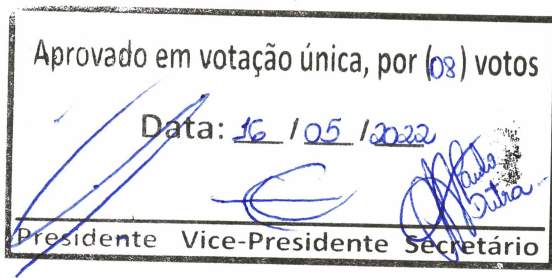 Aprovado em votação única, por (08) votos
Data: 16 / 05 / 2022
Paulo
Dutra
Presidente Vice-Presidente Secretário